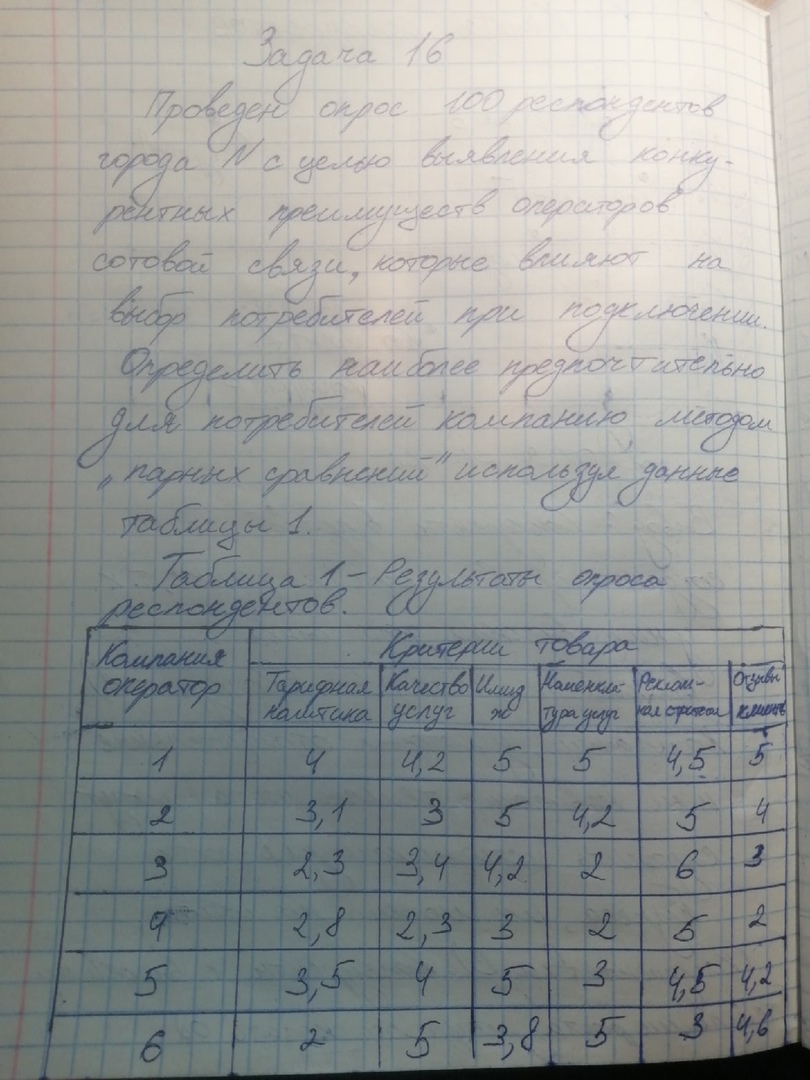 Задача 16
Проведен опрос 100 респондентов
города N с целью выявления конку-
рентных преимуществ операторов
сотовой связи, которые влияют на
выбор потребителей при подключении.
Определить наиболее предпочтительно
для потребителей компанию, методом
„парных сравнений" используя данные
таблицы 1.
Таблица 1 – Результаты опроса
респондентов.
Компания оператор | Критерии товара
Тарифная политика | Качество услуг | Имидж | Номенкла-тура услуг | Реклам-ная стратегия | Отзывы клиентов
1 | 4 | 4,2 | 5 | 5 | 4,5 | 5
2 | 3,1 | 3 | 5 | 4,2 | 5 | 4
3 | 2,3 | 3,4 | 4,2 | 2 | 6 | 3
4 | 2,8 | 2,3 | 3 | 2 | 5 | 2
5 | 3,5 | 4 | 5 | 3 | 4,5 | 4,2
6 | 2 | 5 | 3,8 | 5 | 3 | 4,6